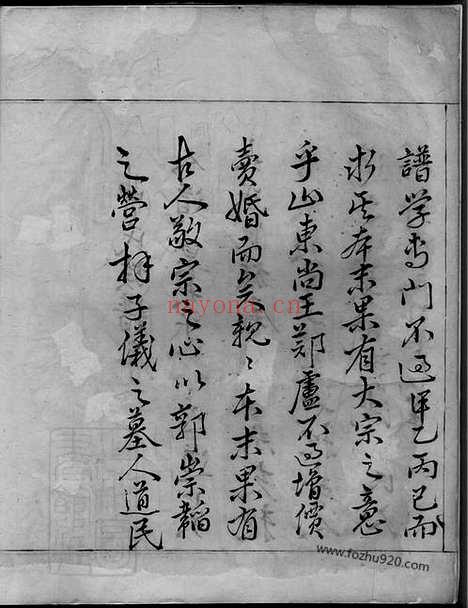 譜学専門不過甲乙丙已而
求其本末果有大宗之意
乎山東尚王鄭盧不過增價
賣婚而無親〻本末果有
古人敬宗之心以郭崇韜
之營拜子儀之墓人道民
nayona.cn
www.fozhu920.com